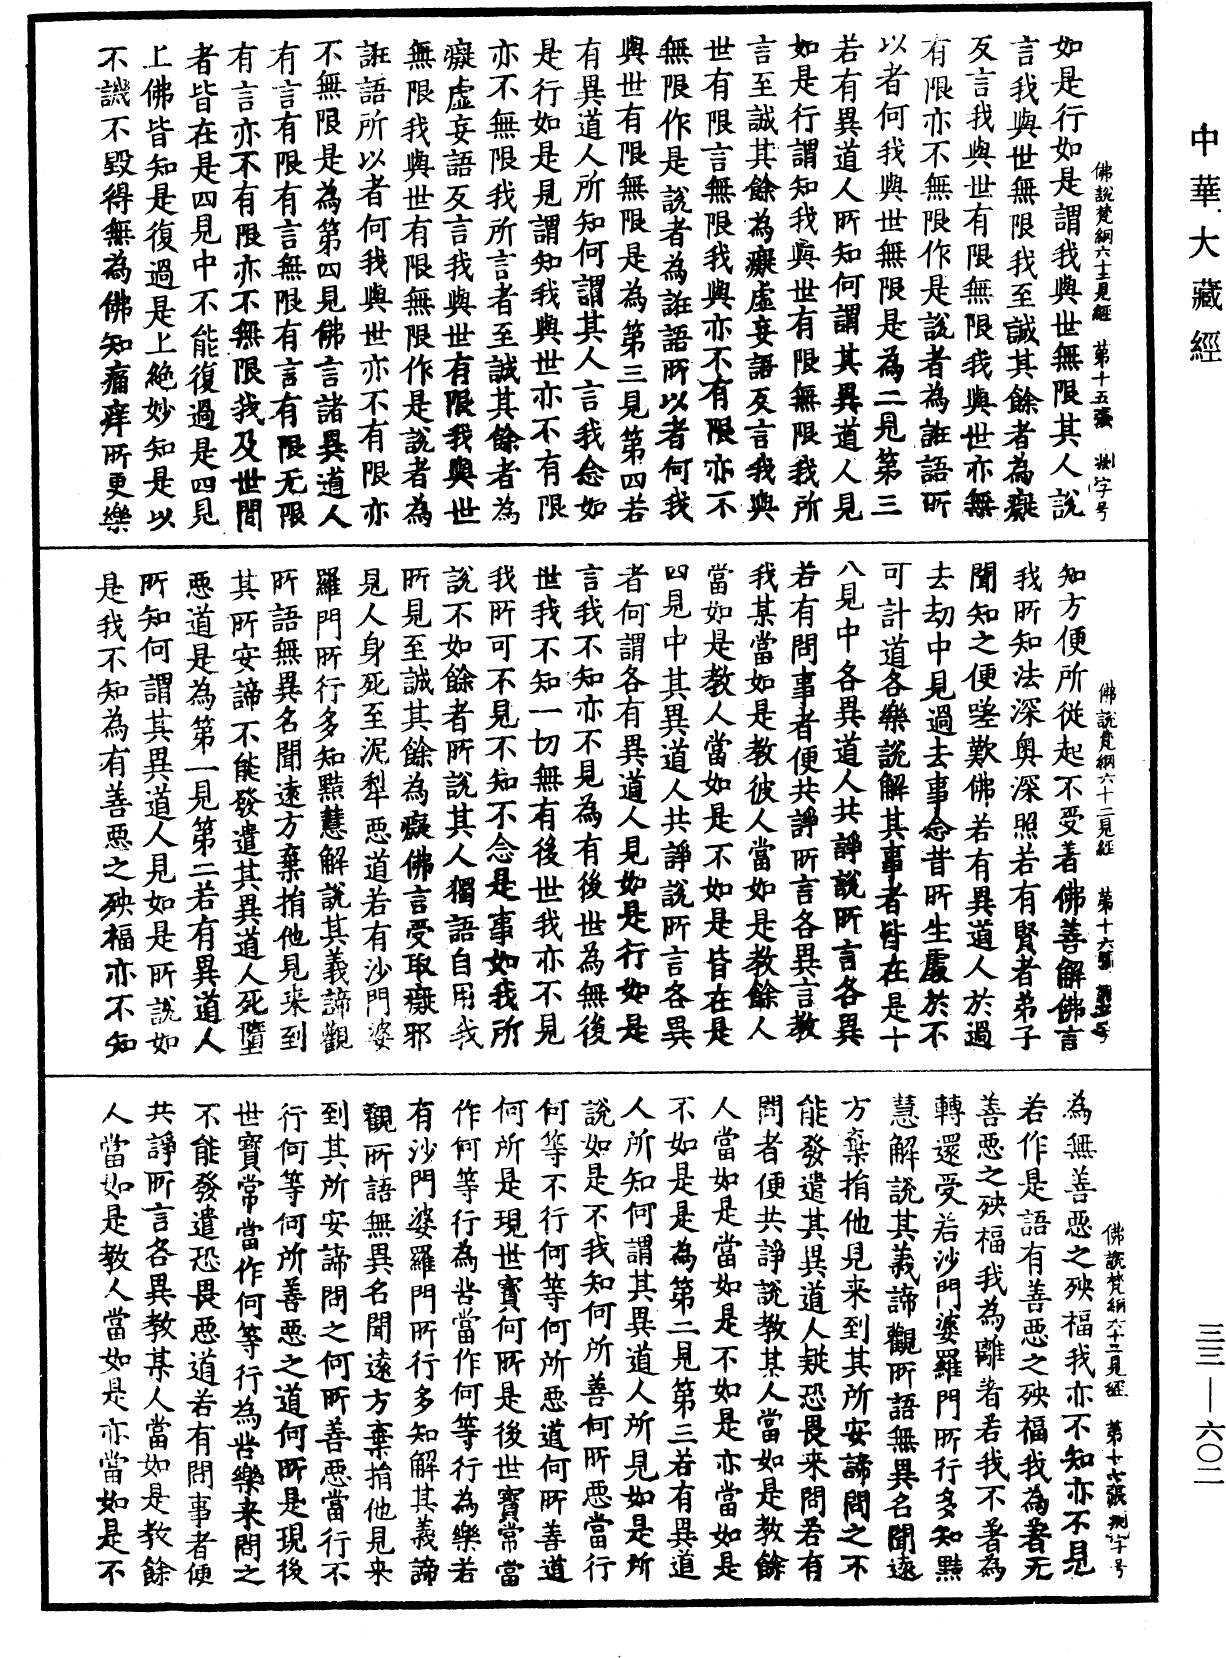 中華大藏經
佛說梵網六十二見經　第十五張　㳅字号
如是行如是謂我與世無限其人說
言我與世無限我至誠其餘者為癡
反言我與世有限無限我與世亦無
有限亦不無限作是說者為誑語所
以者何我與世無限是為二見第三
若有異道人所知何謂其異道人見
如是行謂知我與世有限無限我所
言至誠其餘為癡虛妄語反言我與
世有限言無限我與亦不有限亦不
無限作是說者為誑語所以者何我
與世有限無限是為第三見第四若
有異道人所知何謂其人言我念如
是行如是見謂知我與世亦不有限
亦不無限我所言者至誠其餘者為
癡虛妄語反言我與世有限我與世
無限我與世有限無限作是說者為
誑語所以者何我與世亦不有限亦
不無限是為第四見佛言諸異道人
有言有限有言無限有言有限无限
有言亦不有限亦不無限我及世間
者皆在是四見中不能復過是四見
上佛皆知是復過是上絕妙知是以
不譏不毀得無為佛知痛痒所更樂
佛說梵網六十二見經　第十六張
知方便所從起不受著佛善解佛言
我所知法深奧深照若有賢者弟子
聞知之便嗟歎佛若有異道人於過
去劫中見過去事念昔所生處於不
可計道各樂說解其事者皆在是十
八見中各異道人共諍說所言各異
若有問事者便共諍所言各異言教
我某當如是教彼人當如是教餘人
當如是教人當如是不如是皆在是
四見中其異道人共諍說所言各異
者何謂各有異道人見如是行如是
言我不知亦不見為有後世為無後
世我不知一切無有後世我亦不見
我所可不見不知不念是事如我所
說不如餘者所說其人獨語自用我
所見至誠其餘為癡佛言受取癡邪
見人身死至泥犁惡道若有沙門婆
羅門所行多知黠慧解說其義諦觀
所語無異名聞遠方棄捐他見来到
其所安諦不能發遣其異道人死墮
惡道是為第一見第二若有異道人
所知何謂其異道人見如是所說如
是我不知為有善惡之殃福亦不知
佛說梵網六十二見經　第十七張　㳅字号
為無善惡之殃福我亦不知亦不見
若作是語有善惡之殃福我為著无
善惡之殃福我為離著若我不著為
轉還受若沙門婆羅門所行多知黠
慧解說其義諦觀所語無異名聞遠
方棄捐他見来到其所安諦問之不
能發遣其異道人疑恐畏来問若有
問者便共諍說教某人當如是教餘
人當如是當如是不如是亦當如是
不如是是為第二見第三若有異道
人所知何謂其異道人所見如是所
說如是不我知何所善何所惡當行
何等不行何等何所惡道何所善道
何所是現世寶何所是後世寶常當
作何等行為苦當作何等行為樂若
有沙門婆羅門所行多知解其義諦
觀所語無異名聞遠方棄捐他見来
到其所安諦問之何所善惡當行不
行何等何所善惡之道何所是現後
世寶常當作何等行為苦樂来問之
不能發遣恐畏惡道若有問事者便
共諍所言各異教某人當如是教餘
人當如是教人當如是亦當如是不
三三—六〇二